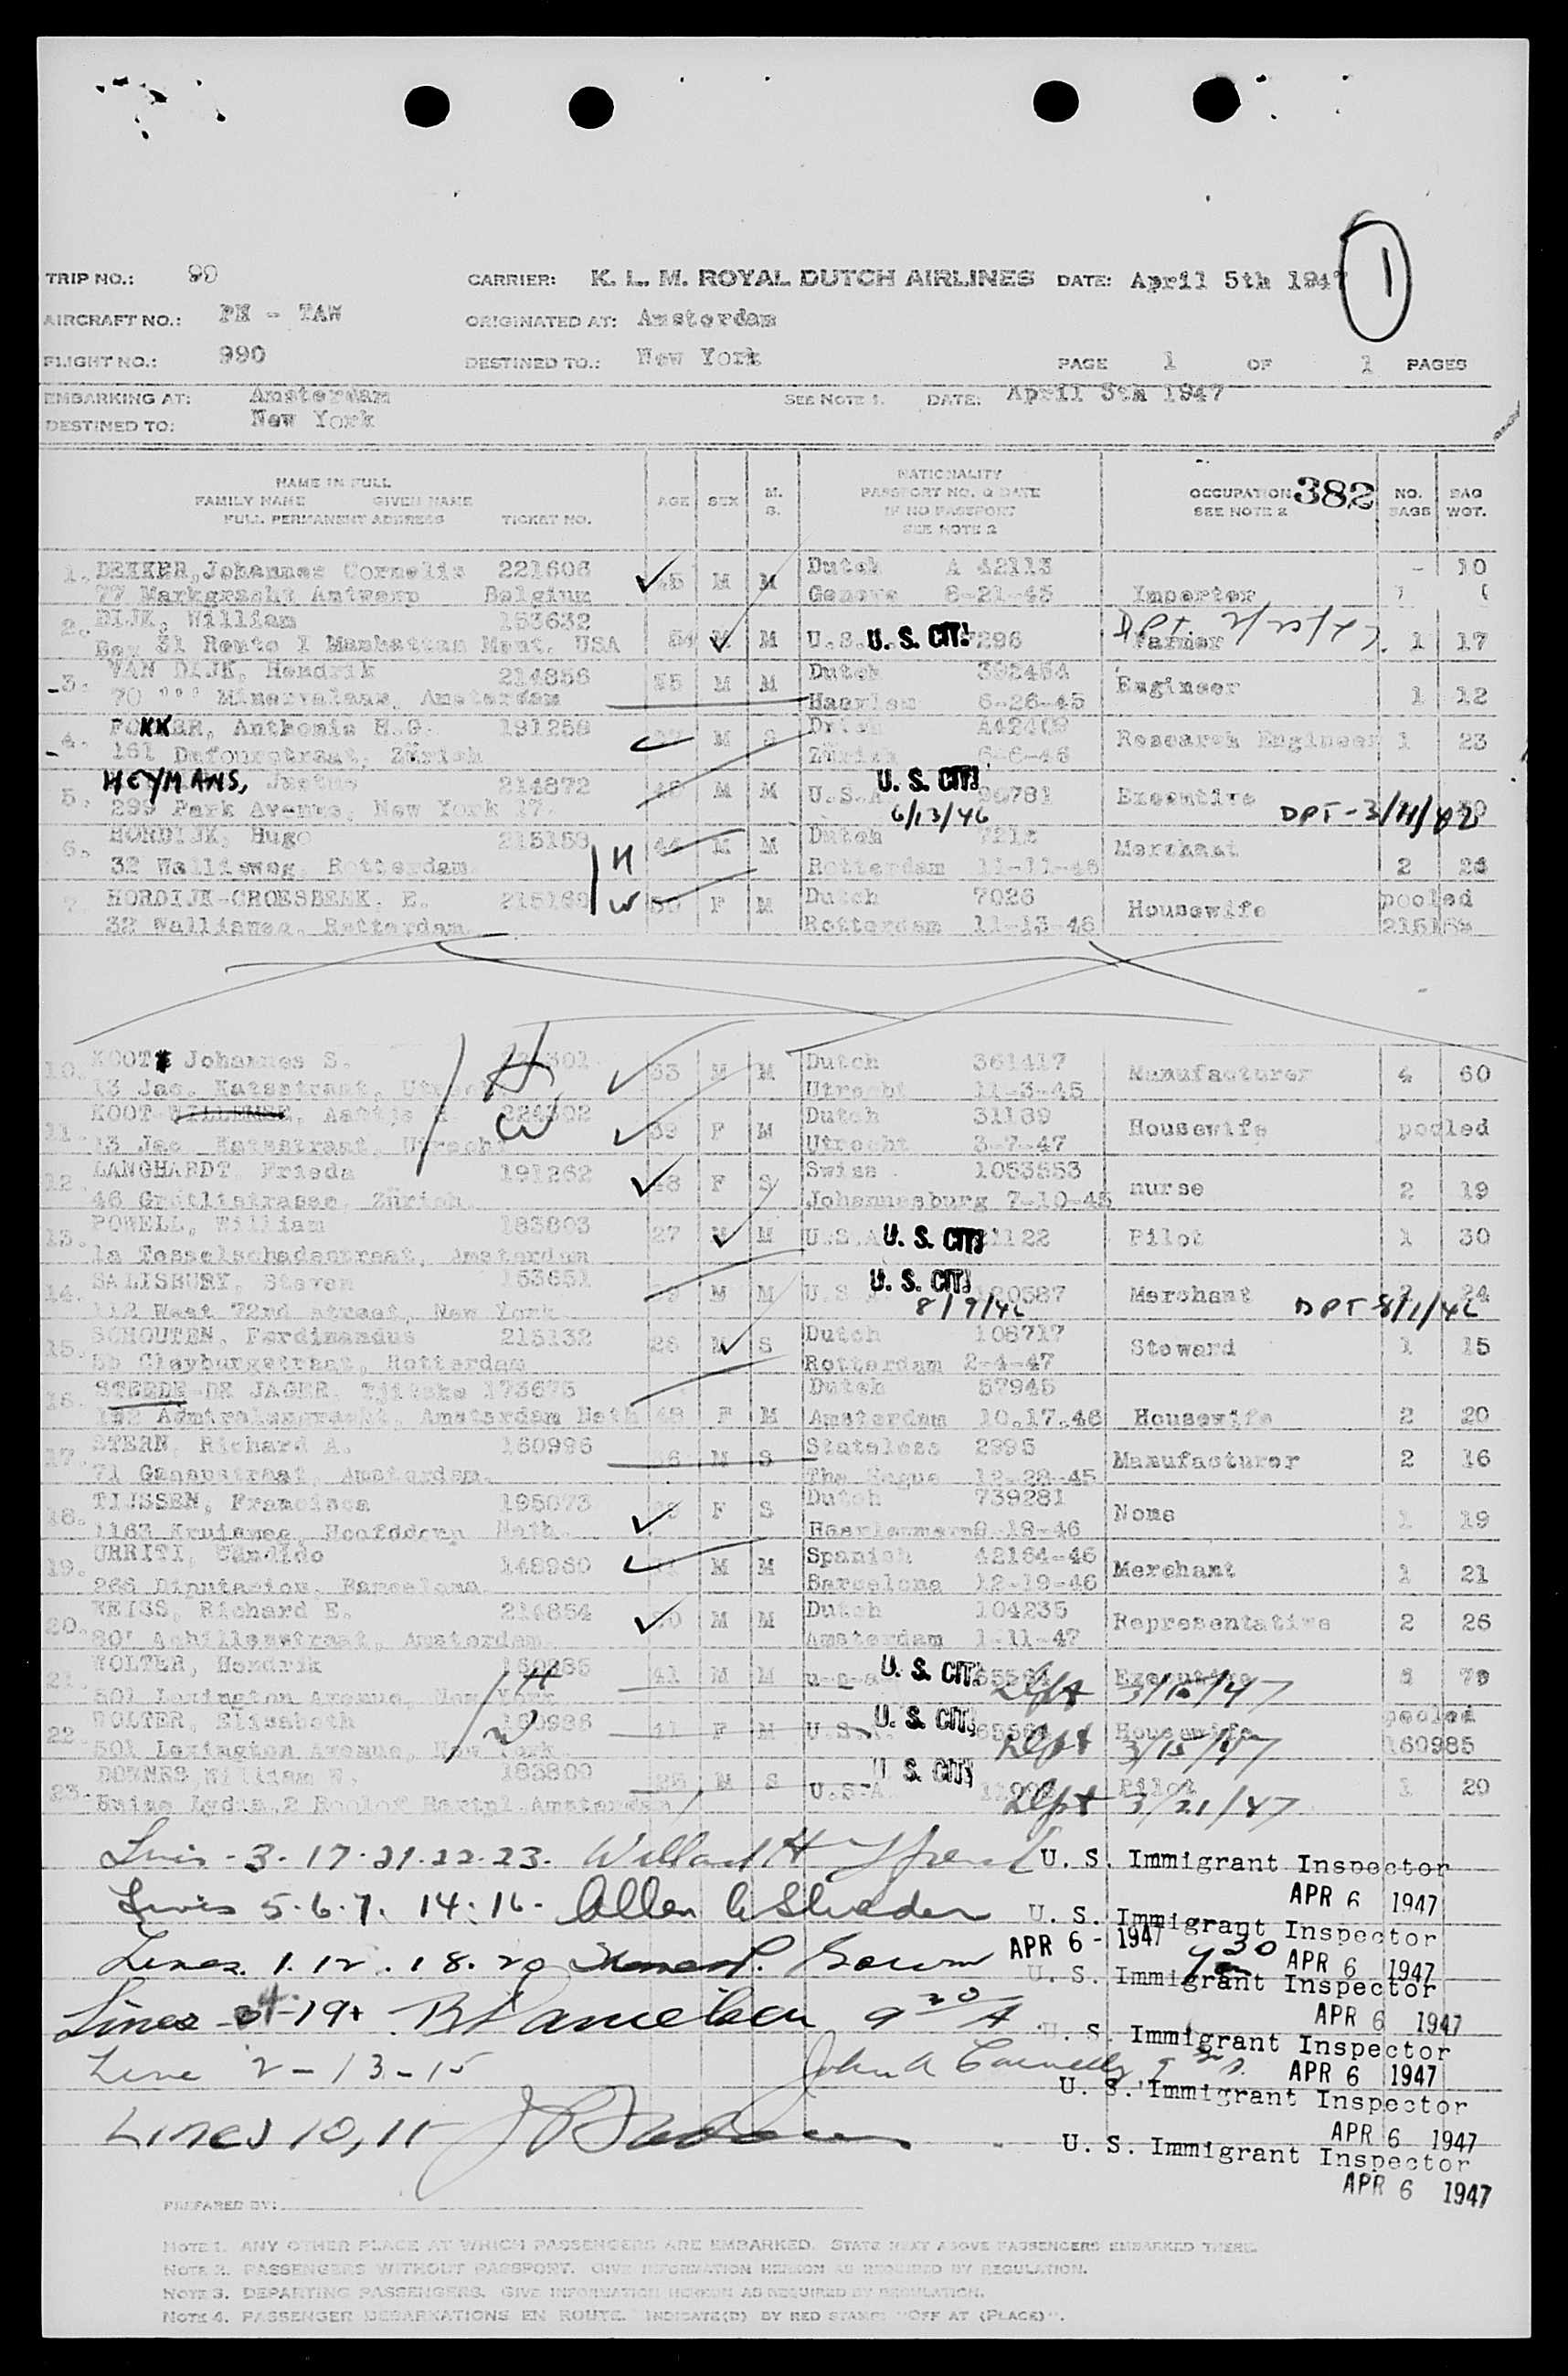 TRIP NO.: 99 CARRIER: K. L. M. ROYAL DUTCH AIRLINES DATE: April 5th 1947 1
AIRCRAFT NO.: PH - TAW ORIGINATED AT: Amsterdam
FLIGHT NO.: 990 DESTINED TO.: New York PAGE 1 OF 1 PAGES
EMBARKING AT: Amsterdam SEE NOTE 1. DATE: April 5th 1947
DESTINED TO: New York
NAME IN FULL
FAMILY NAME GIVEN NAME
FULL PERMANENT ADDRESS TICKET NO.
AGE SEX M. S.
NATIONALITY
PASSPORT NO. & DATE
IF NO PASSPORT
SEE NOTE 2
OCCUPATION 382
SEE NOTE 2
NO. BAGS BAG WGT.
1. DEKKER, Johannes Cornelis 221606 45 M M Dutch A 42113 - 10
77 Markgracht Antwerp Belgium Geneva 6-21-45 Importer
2. DIJK, William 153632 M M U.S. U. S. CIT. 7296 Farmer 1 17
Box 31 Route 1 Manhattan Mont. USA
3. VAN DIJK, Hendrik 214856 M M Dutch 392454 Engineer
70 Minervalaan, Amsterdam Haarlem 6-26-45 1 12
4. FOKKER, Anthonie H.G. 191256 M S Dutch A42409 Research Engineer 1 23
161 Dufourstraat, Zürich Zürich 6-6-46
5. HEYMANS, Justus 214872 M M U.S.A. U. S. CIT. 90781 Executive
299 Park Avenue, New York 17. 6/13/46 DPT-
6. HORDIJK, Hugo 215159 H 44 M M Dutch Merchant
32 Walliaweg, Rotterdam Rotterdam 11-11-46 2 24
7. HORDIJK-GROESBEEK, E. W F M Dutch 7026 Housewife pooled
32 Walliaweg, Rotterdam. Rotterdam 11-13-46
10. KOOT Johannes S. H 53 M M Dutch 361417 Manufacturer 4 60
13 Jac. Katsstraat, Utrecht Utrecht 11-3-45
11. KOOT 224302 W 39 F M Dutch 31169 Housewife pooled
13 Jac. Katsstraat, Utrecht Utrecht 3-7-47
12. LANGHARDT, Frieda 191262 F S Swiss 1053553 nurse 2 19
46 Grütlistrasse, Zürich. Johannesburg 7-10-45
13. POWELL, William 183803 27 M M U.S.A. U. S. CIT. Pilot 1 30
1a Tesselschadestraat, Amsterdam
14. SALISBURY, Steven 153651 M M U.S. U. S. CIT. Merchant 2 24
112 West 72nd street, New York 8/9/46 DPT-8/1/46
15. SCHOUTEN, Ferdinandus 215132 26 M S Dutch 108717 Steward 1 15
Rotterdam Rotterdam 2-4-47
16. STEEDE-DE JAGER, Tjitske 173675 Dutch 57945
Amsterdam Neth 48 F M Amsterdam 10.17.46 Housewife 2 20
17. STERN, Richard A. 160996 M S Stateless 2995 Manufacturer 2 16
71 Amsterdam. The Hague 12-28-45
18. TIJSSEN, Francisca 195073 F S Dutch 739281 None 1 19
1163 Kruisweg, Hoofddorp Neth.
19. URRITI, Cándido 148960 M M Spanish 42164-46 Merchant 1 21
266 Diputacion, Barcelona Barcelona 12-19-46
20. WEISS, Richard E. 214854 M M Dutch 104235 Representative 2 26
Achillesstraat, Amsterdam. Amsterdam 1-11-47
21. WOLTER, Hendrik 160985 H 41 M M U. S. CIT. Executive
501 Lexington Avenue, New York Dept 3/15/47
22. WOLTER, Elisabeth 160986 W 41 F M U.S. U. S. CIT. Housewife pooled
501 Lexington Avenue, New York Dept 3/15/47 160985
23. DOWNES, William W. 183800 M S U.S.A. U. S. CIT. Pilot 1 20
Amsterdam Dept 3/21/47
Lines - 3. 17. 21. 22. 23. U. S. Immigrant Inspector
APR 6 1947
Lines 5. 6. 7. 14. 16. U. S. Immigrant Inspector
APR 6 - 1947 APR 6 1947
Lines. 1. 12. 18. 20 U. S. Immigrant Inspector
APR 6 1947
Lines 4-19 U. S. Immigrant Inspector
APR 6 1947
Line 2-13-15 John A U. S. Immigrant Inspector
APR 6 1947
Lines 10, 11 U. S. Immigrant Inspector
APR 6 1947
PREPARED BY:
NOTE 1. ANY OTHER PLACE AT WHICH PASSENGERS ARE EMBARKED. STATE NEXT ABOVE PASSENGERS EMBARKED THERE.
NOTE 2. PASSENGERS WITHOUT PASSPORT. GIVE INFORMATION HEREON AS REQUIRED BY REGULATION.
NOTE 3. DEPARTING PASSENGERS. GIVE INFORMATION HEREON AS REQUIRED BY REGULATION.
NOTE 4. PASSENGER DEBARKATIONS EN ROUTE. INDICATE(D) BY RED STAMP: "OFF AT (PLACE)".